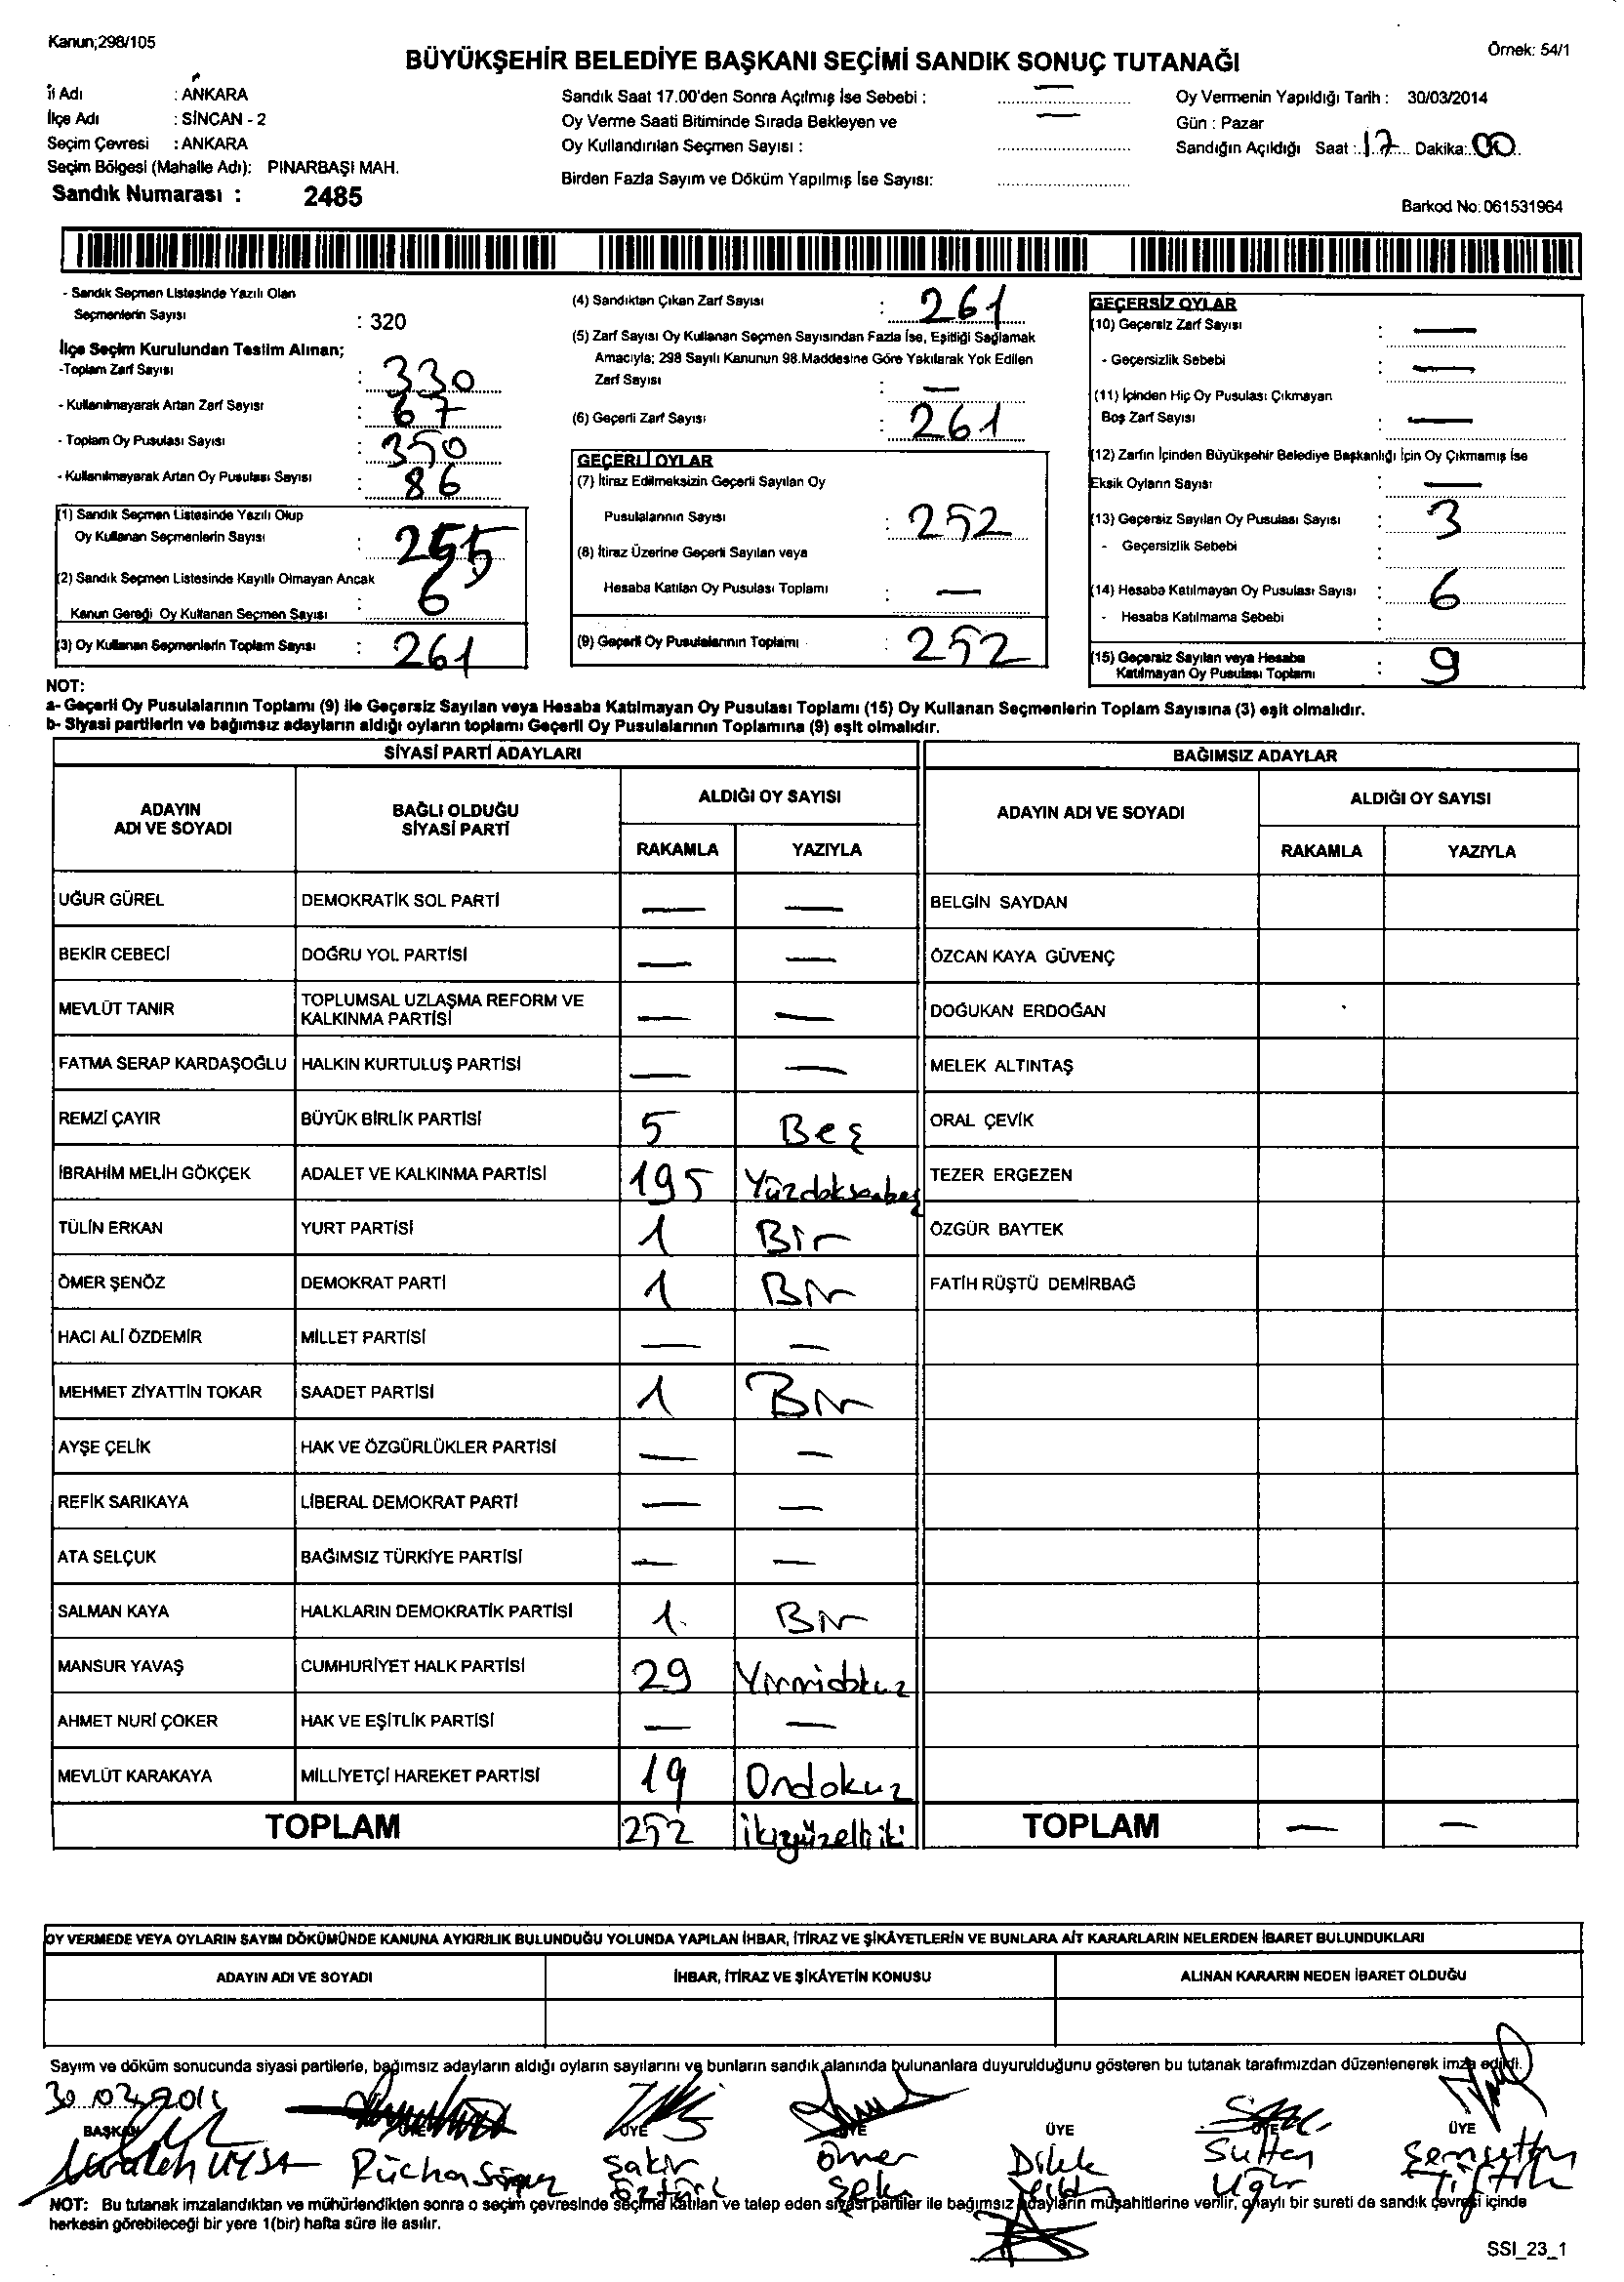 Kanun;298/105
Örnek: 54/1
BÜYÜKŞEHİR BELEDİYE BAŞKANI SEÇİMİ SANDIK SONUÇ TUTANAĞI
İl Adı : ANKARA
İlçe Adı : SİNCAN - 2
Seçim Çevresi : ANKARA
Seçim Bölgesi (Mahalle Adı): PINARBAŞI MAH.
Sandık Numarası : 2485
Sandık Saat 17.00'den Sonra Açılmış İse Sebebi : —
Oy Verme Saati Bitiminde Sırada Bekleyen ve —
Oy Kullandırılan Seçmen Sayısı :
Birden Fazla Sayım ve Döküm Yapılmış İse Sayısı:
Oy Vermenin Yapıldığı Tarih : 30/03/2014
Gün : Pazar
Sandığın Açıldığı Saat : 17 Dakika: 00
Barkod No: 061531964
- Sandık Seçmen Listesinde Yazılı Olan
Seçmenlerin Sayısı : 320
İlçe Seçim Kurulundan Teslim Alınan;
-Toplam Zarf Sayısı : 330
- Kullanılmayarak Artan Zarf Sayısı : 67
- Toplam Oy Pusulası Sayısı : 350
- Kullanılmayarak Artan Oy Pusulası Sayısı : 86
(1) Sandık Seçmen Listesinde Yazılı Olup
Oy Kullanan Seçmenlerin Sayısı : 255
(2) Sandık Seçmen Listesinde Kayıtlı Olmayan Ancak
Kanun Gereği Oy Kullanan Seçmen Sayısı : 6
(3) Oy Kullanan Seçmenlerin Toplam Sayısı : 261
(4) Sandıktan Çıkan Zarf Sayısı : 261
(5) Zarf Sayısı Oy Kullanan Seçmen Sayısından Fazla İse, Eşitliği Sağlamak
Amacıyla; 298 Sayılı Kanunun 98.Maddesine Göre Yakılarak Yok Edilen
Zarf Sayısı : —
(6) Geçerli Zarf Sayısı : 261
GEÇERLİ OYLAR
(7) İtiraz Edilmeksizin Geçerli Sayılan Oy
Pusulalarının Sayısı : 252
(8) İtiraz Üzerine Geçerli Sayılan veya
Hesaba Katılan Oy Pusulası Toplamı : —
(9) Geçerli Oy Pusulalarının Toplamı : 252
GEÇERSİZ OYLAR
(10) Geçersiz Zarf Sayısı : —
- Geçersizlik Sebebi : —
(11) İçinden Hiç Oy Pusulası Çıkmayan
Boş Zarf Sayısı : —
(12) Zarfın İçinden Büyükşehir Belediye Başkanlığı İçin Oy Çıkmamış İse
Eksik Oyların Sayısı : —
(13) Geçersiz Sayılan Oy Pusulası Sayısı : 3
- Geçersizlik Sebebi :
(14) Hesaba Katılmayan Oy Pusulası Sayısı : 6
- Hesaba Katılmama Sebebi :
(15) Geçersiz Sayılan veya Hesaba
Katılmayan Oy Pusulası Toplamı : 9
NOT:
a- Geçerli Oy Pusulalarının Toplamı (9) ile Geçersiz Sayılan veya Hesaba Katılmayan Oy Pusulası Toplamı (15) Oy Kullanan Seçmenlerin Toplam Sayısına (3) eşit olmalıdır.
b- Siyasi partilerin ve bağımsız adayların aldığı oyların toplamı Geçerli Oy Pusulalarının Toplamına (9) eşit olmalıdır.
SİYASİ PARTİ ADAYLARI
ADAYIN ADI VE SOYADI BAĞLI OLDUĞU SİYASİ PARTİ ALDIĞI OY SAYISI
RAKAMLA YAZIYLA
UĞUR GÜREL DEMOKRATİK SOL PARTİ — —
BEKİR CEBECİ DOĞRU YOL PARTİSİ — —
MEVLÜT TANIR TOPLUMSAL UZLAŞMA REFORM VE KALKINMA PARTİSİ — —
FATMA SERAP KARDAŞOĞLU HALKIN KURTULUŞ PARTİSİ — —
REMZİ ÇAYIR BÜYÜK BİRLİK PARTİSİ 5 Beş
İBRAHİM MELİH GÖKÇEK ADALET VE KALKINMA PARTİSİ 195 Yüzdoksanbeş
TÜLİN ERKAN YURT PARTİSİ 1 Bir
ÖMER ŞENÖZ DEMOKRAT PARTİ 1 Bir
HACI ALİ ÖZDEMİR MİLLET PARTİSİ — —
MEHMET ZİYATTİN TOKAR SAADET PARTİSİ 1 Bir
AYŞE ÇELİK HAK VE ÖZGÜRLÜKLER PARTİSİ — —
REFİK SARIKAYA LİBERAL DEMOKRAT PARTİ — —
ATA SELÇUK BAĞIMSIZ TÜRKİYE PARTİSİ — —
SALMAN KAYA HALKLARIN DEMOKRATİK PARTİSİ 1 Bir
MANSUR YAVAŞ CUMHURİYET HALK PARTİSİ 29 Yirmidokuz
AHMET NURİ ÇOKER HAK VE EŞİTLİK PARTİSİ — —
MEVLÜT KARAKAYA MİLLİYETÇİ HAREKET PARTİSİ 19 Ondokuz
TOPLAM 252 ikiyüzelliiki
BAĞIMSIZ ADAYLAR
ADAYIN ADI VE SOYADI ALDIĞI OY SAYISI
RAKAMLA YAZIYLA
BELGİN SAYDAN
ÖZCAN KAYA GÜVENÇ
DOĞUKAN ERDOĞAN
MELEK ALTINTAŞ
ORAL ÇEVİK
TEZER ERGEZEN
ÖZGÜR BAYTEK
FATİH RÜŞTÜ DEMİRBAĞ
TOPLAM — —
OY VERMEDE VEYA OYLARIN SAYIM DÖKÜMÜNDE KANUNA AYKIRILIK BULUNDUĞU YOLUNDA YAPILAN İHBAR, İTİRAZ VE ŞİKÂYETLERİN VE BUNLARA AİT KARARLARIN NELERDEN İBARET BULUNDUKLARI
ADAYIN ADI VE SOYADI İHBAR, İTİRAZ VE ŞİKÂYETİN KONUSU ALINAN KARARIN NEDEN İBARET OLDUĞU
Sayım ve döküm sonucunda siyasi partilerle, bağımsız adayların aldığı oyların sayılarını ve bunların sandık alanında bulunanlara duyurulduğunu gösteren bu tutanak tarafımızdan düzenlenerek imza edildi.
30.03.2014
BAŞKAN ÜYE ÜYE ÜYE ÜYE ÜYE
UYSAL Şakir Ömer Dilek Sultan
Öztürk Uğur
NOT: Bu tutanak imzalandıktan ve mühürlendikten sonra o seçim çevresinde seçime katılan ve talep eden siyasi partiler ile bağımsız adayların müşahitlerine verilir, onaylı bir sureti de sandık çevresi içinde
herkesin görebileceği bir yere 1(bir) hafta süre ile asılır.
SSI_23_1